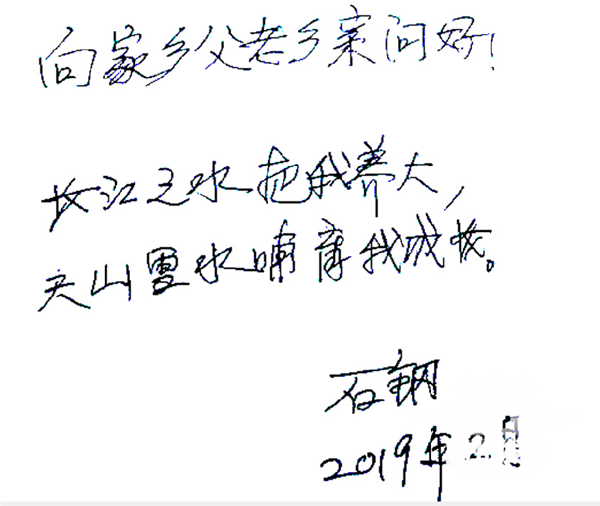 向家乡父老乡亲问好！
长江之水把我养大，
天山雪水哺育我成长。
石钢
2019年2月